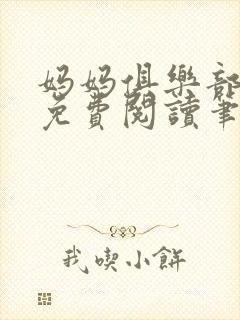 妈妈俱樂部
免費閱讀筆
我喫小餅